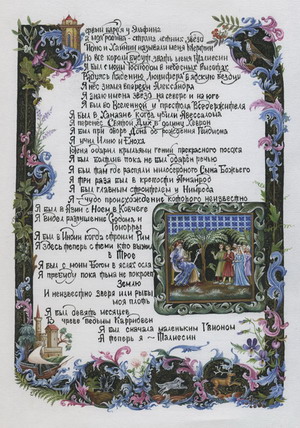 Первый бард я у Элфина
А моя родина – страна летних звезд
Иоанн и Хайнин называли меня Мерддин
Но все короли будут звать меня Талиесин
Я был с моим Господом в небесных высотах
Я нес знамя впереди Александра
Я знаю имена звезд на севере и на юге
Я был во Вселенной у престола Вседержителя
Я был в Ханаане когда убили Авессалома
Я перенес Святой Дух в долину Хеврон
Я был при дворе Дона до рождения Гвидиона
Я учил Илию и Еноха
Меня одарил крыльями гений прекрасного посоха
Я был болтлив пока не был одарен речью
Я был там где распяли милосердного Сына Божьего
Я три раза был в крепости Арианрод
Я был главным строителем у Нимрода
Я – чудо происхождение которого неизвестно
Я был в Азии с Ноем в Ковчеге
Я видел разрушение Содома и
Гоморры
Я был в Индии когда строили Рим
Я здесь теперь с теми кто выжил
в Трое
Я был с моим Богом в яслях осла
Я пребуду пока тьма не покроет
Землю
И неизвестно зверя или рыбы
моя плоть
Я был девять месяцев
В чреве ведьмы Карридвен
Я был сначала маленьким Гвионом
Я теперь я – Талиесин